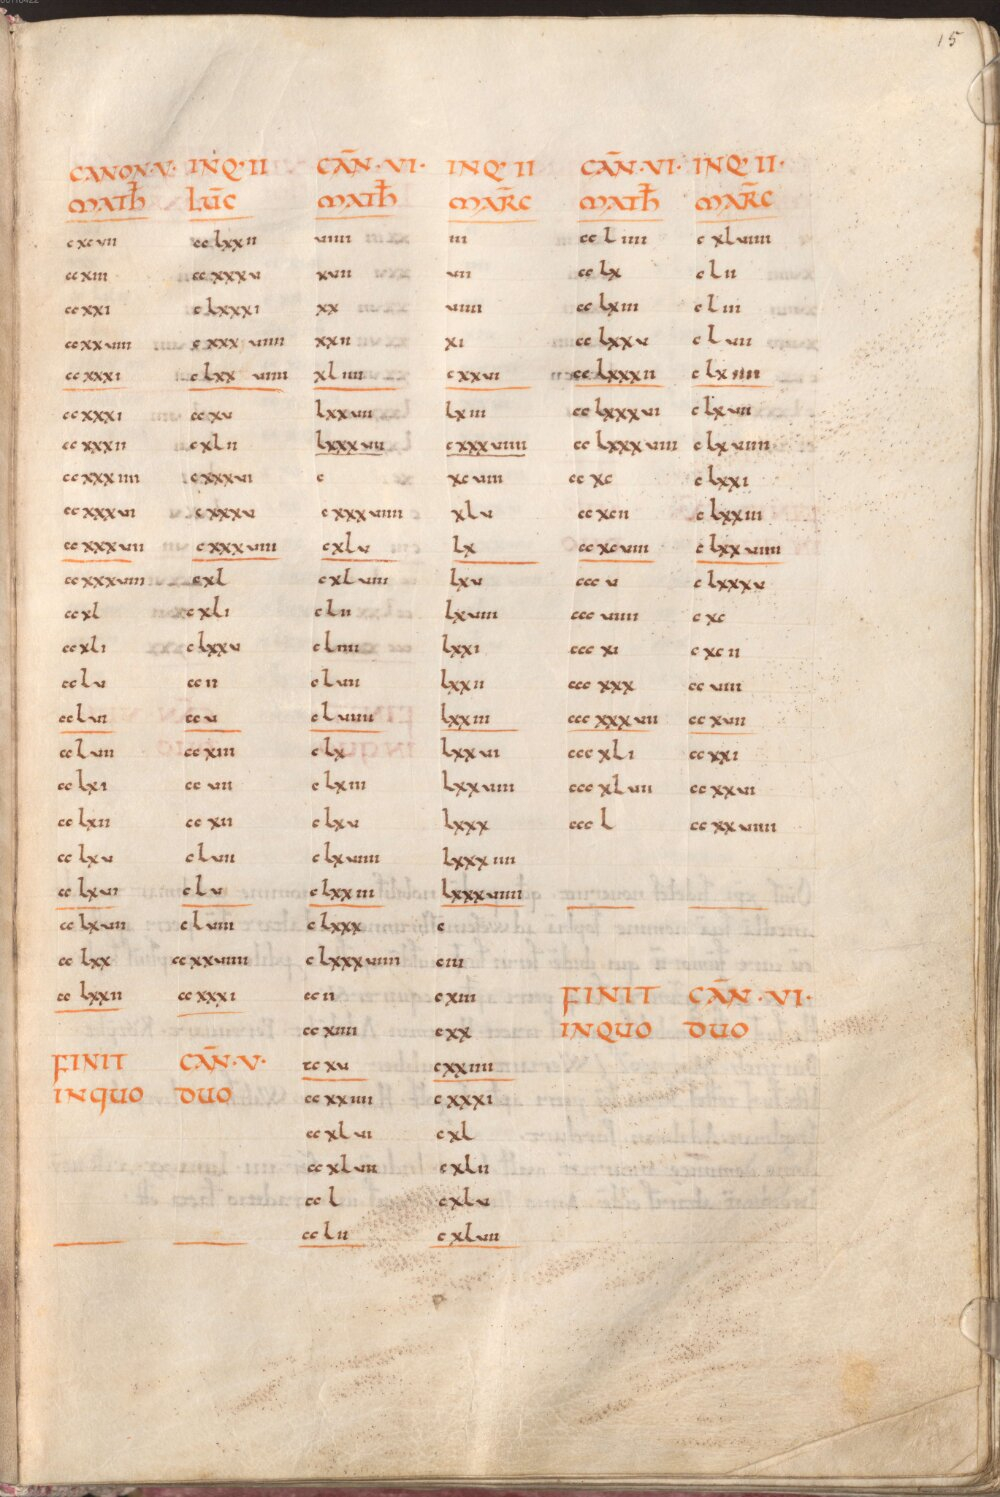 15
CANON·V· INQ·II CAN̄·VI· INQ II CAN̄·VI· INQ II·
MATH̄ LUC̄ MATH̄ MAR̄C MATH̄ MAR̄C
cxcvii cclxxii viiii iii ccliiii cxlviiii
ccxiii ccxxxv xvii vii cclx clii
ccxxi clxxxi xx viiii cclxiii cliii
ccxxviii cxxxviiii xxii xi cclxxv clvii
ccxxxi clxxviiii xliiii cxxvi cclxxxii clxiiii
ccxxxi ccxv lxxvii lxiii cclxxxvi clxvii
ccxxxii cxlii lxxxvii cxxxviiii cclxxxviiii clxviiii
ccxxxiiii cxxxvi c xcviii ccxc clxxi
ccxxxvi cxxxv cxxxviiii xlv ccxcii clxxiii
ccxxxvii cxxxviii cxlv lx ccxcviii clxxviiii
ccxxxviii cxl cxlviii lxv cccv clxxxv
ccxl cxli clii lxviiii cccviiii cxc
ccxli clxxv cliiii lxxi cccxi cxcii
cclv ccii clvii lxxii cccxxx ccviiii
cclvi ccv clviiii lxxiii cccxxxvii ccxvii
cclvii ccxiii clx lxxvi cccxli ccxxi
cclxi ccvii clxiii lxxviii cccxlvii ccxxvi
cclxii ccxii clxv lxxx cccl ccxxviiii
cclxv clvii clxviiii lxxxiiii
cclxvi clv clxxiii lxxxviiii
cclxvii clviii clxxx c
cclxx ccxxviiii clxxxviiii ciii
cclxxii ccxxxi ccii cxiii FINIT CAN̄·VI·
ccxiiii cxx INQUO DUO
FINIT CAN̄·V· ccxv cxxiiii
INQUO DUO ccxxiiii cxxxi
ccxlvi cxl
ccxlvii cxlii
ccl cxlv
cclii cxlvii